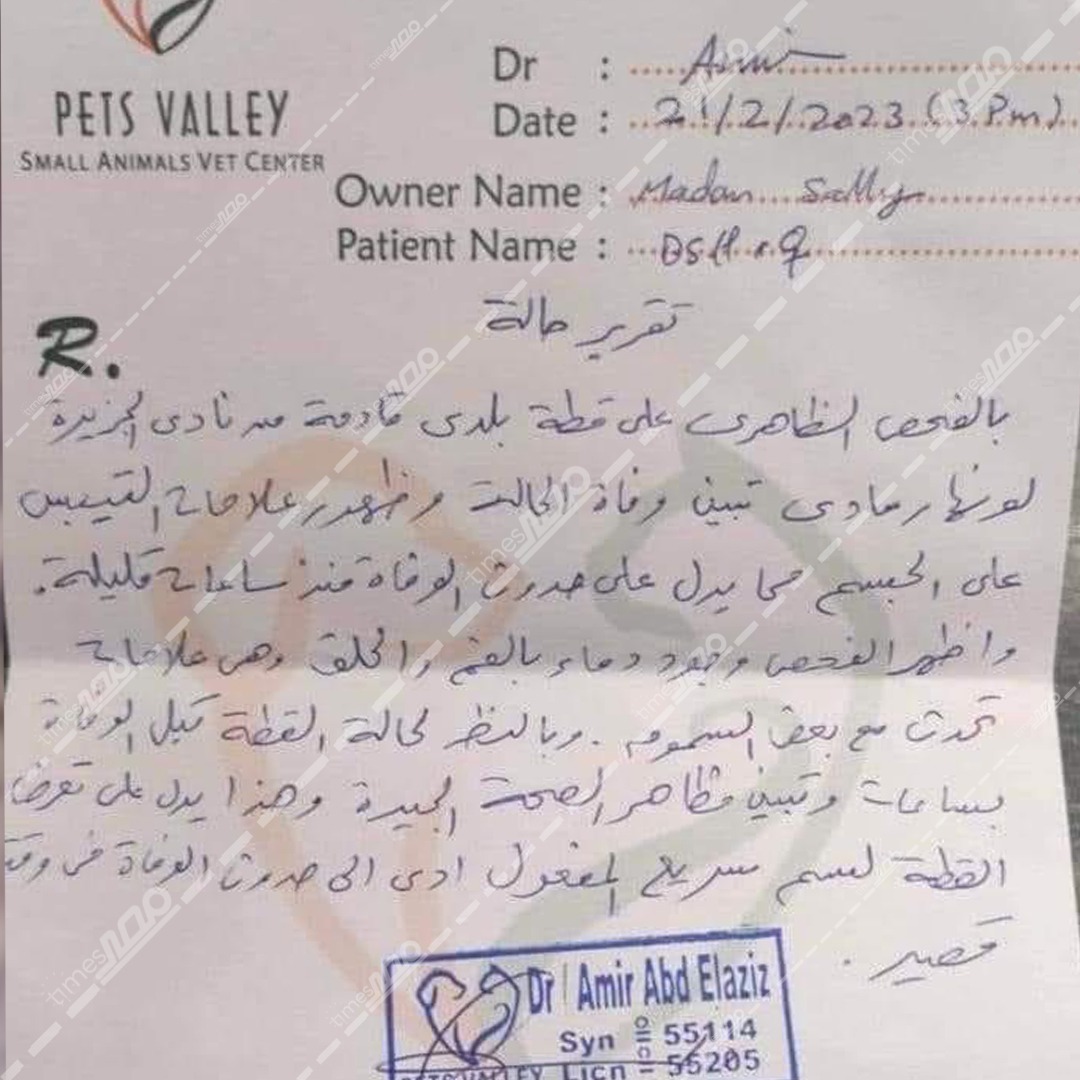 PETS VALLEY
SMALL ANIMALS VET CENTER
Dr : Amir
Date : 21/2/2023 (3 Pm)
Owner Name : Madam Sally
Patient Name : DSH . ♀
تقرير حالة
R.
بالفحص الظاهرى على قطة بلدى قادمة من نادى الجزيرة
لونها رمادى تبين وفاة الحالة وظهور علامات التيبس
على الجسم مما يدل على حدوث الوفاة منذ ساعات قليلة.
واظهر الفحص وجود دماء بالفم والحلق وهى علامات
تحدث مع بعض السموم . وبالنظر لحالة القطة قبل الوفاة
بساعات وتبين مظاهر الصحة الجيدة وهذا يدل على تعرض
القطة لسم سريع المفعول ادى الى حدوث الوفاة فى وقت
قصير .
Dr / Amir Abd Elaziz
Syn № 55114
PETS VALLEY Licn № 55205
times مصر